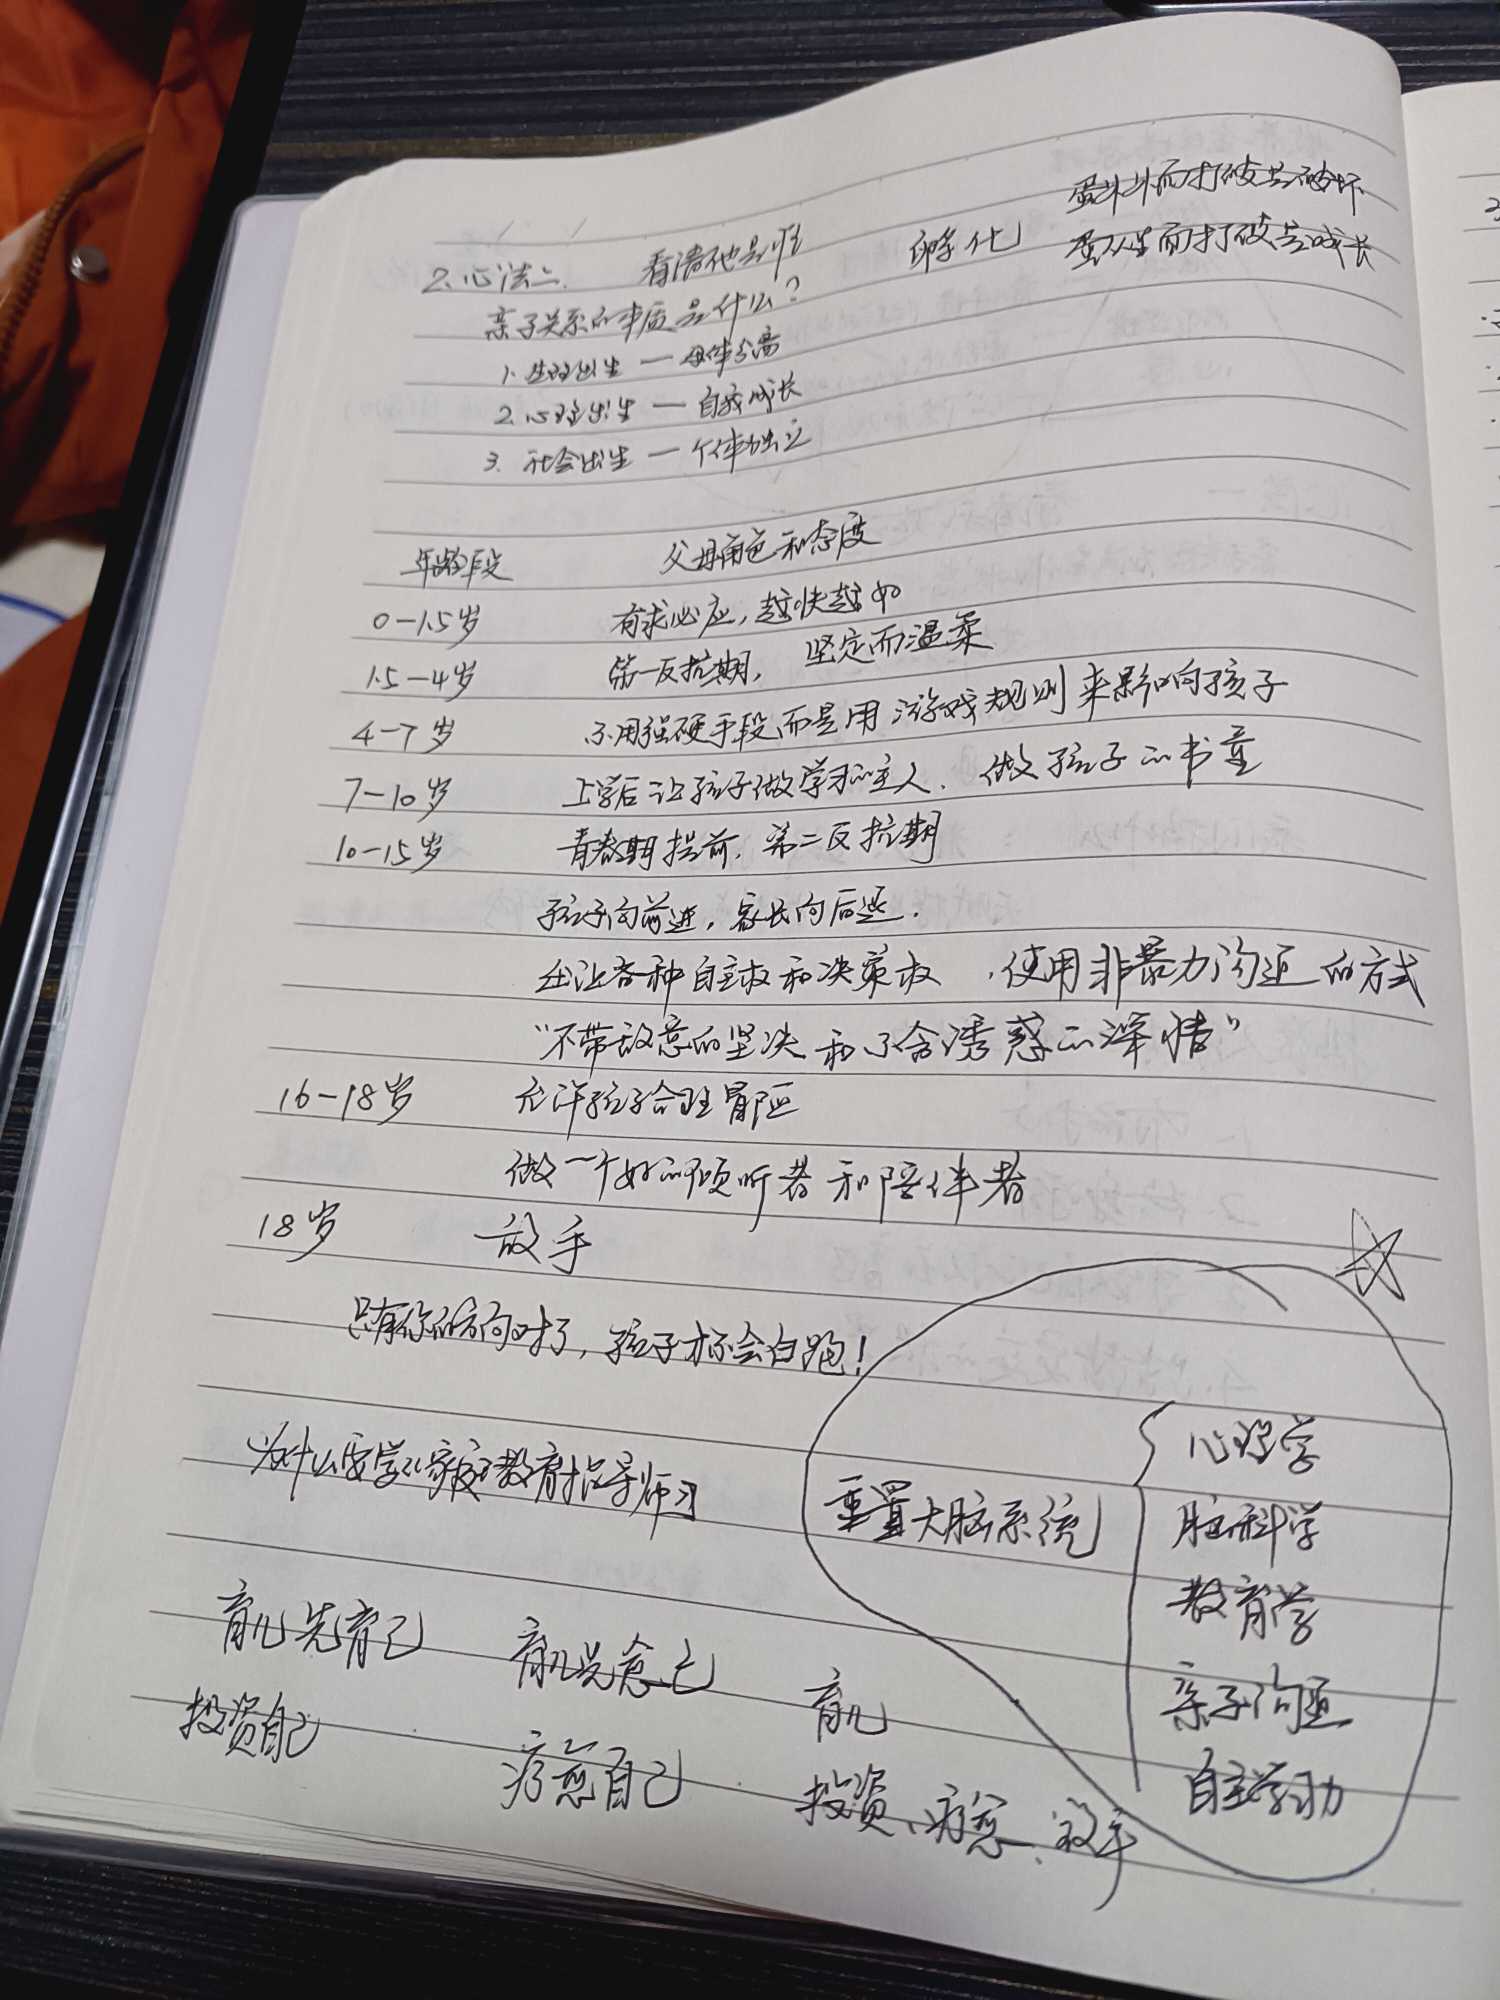 2.心法二. 看清他是谁 孵化 蛋从外而打破是破坏
蛋从里而打破是成长
亲子关系的本质是什么?
1.生理出生 — 母体分离
2.心理出生 — 自我成长
3.社会出生 — 个体独立
年龄段 父母角色和态度
0-1.5岁 有求必应,越快越好
1.5-4岁 第一反抗期, 坚定而温柔
4-7岁 不用强硬手段而是用游戏规则来影响孩子
7-10岁 上学后让孩子做学习的主人. 做孩子的书童
10-15岁 青春期提前.第二反抗期
孩子向前进,家长向后退.
出让各种自主权和决策权 ,使用非暴力沟通的方式
“不带敌意的坚决和不含诱惑的深情”
16-18岁 允许孩子合理冒险
做一个好的倾听者和陪伴者
18岁 放手
只有你的方向对了,孩子才不会白跑!
为什么要学习家庭教育指导师
重置大脑系统
心理学
脑科学
教育学
亲子沟通
自主学习力
育儿先育己 育儿先愈己 育儿
投资自己 疗愈自己 投资、疗愈、放手